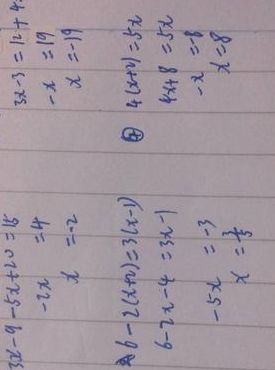 3x-9-5x+20=15
-2x =4
x =-2
6-2(x+2)=3(x-1)
6-2x-4 =3x-1
-5x =-3
x =3/5
3x-3 =12+4
-x =19
x =-19
④ 4(x+2)=5x
4x+8 =5x
-x =-8
x =8